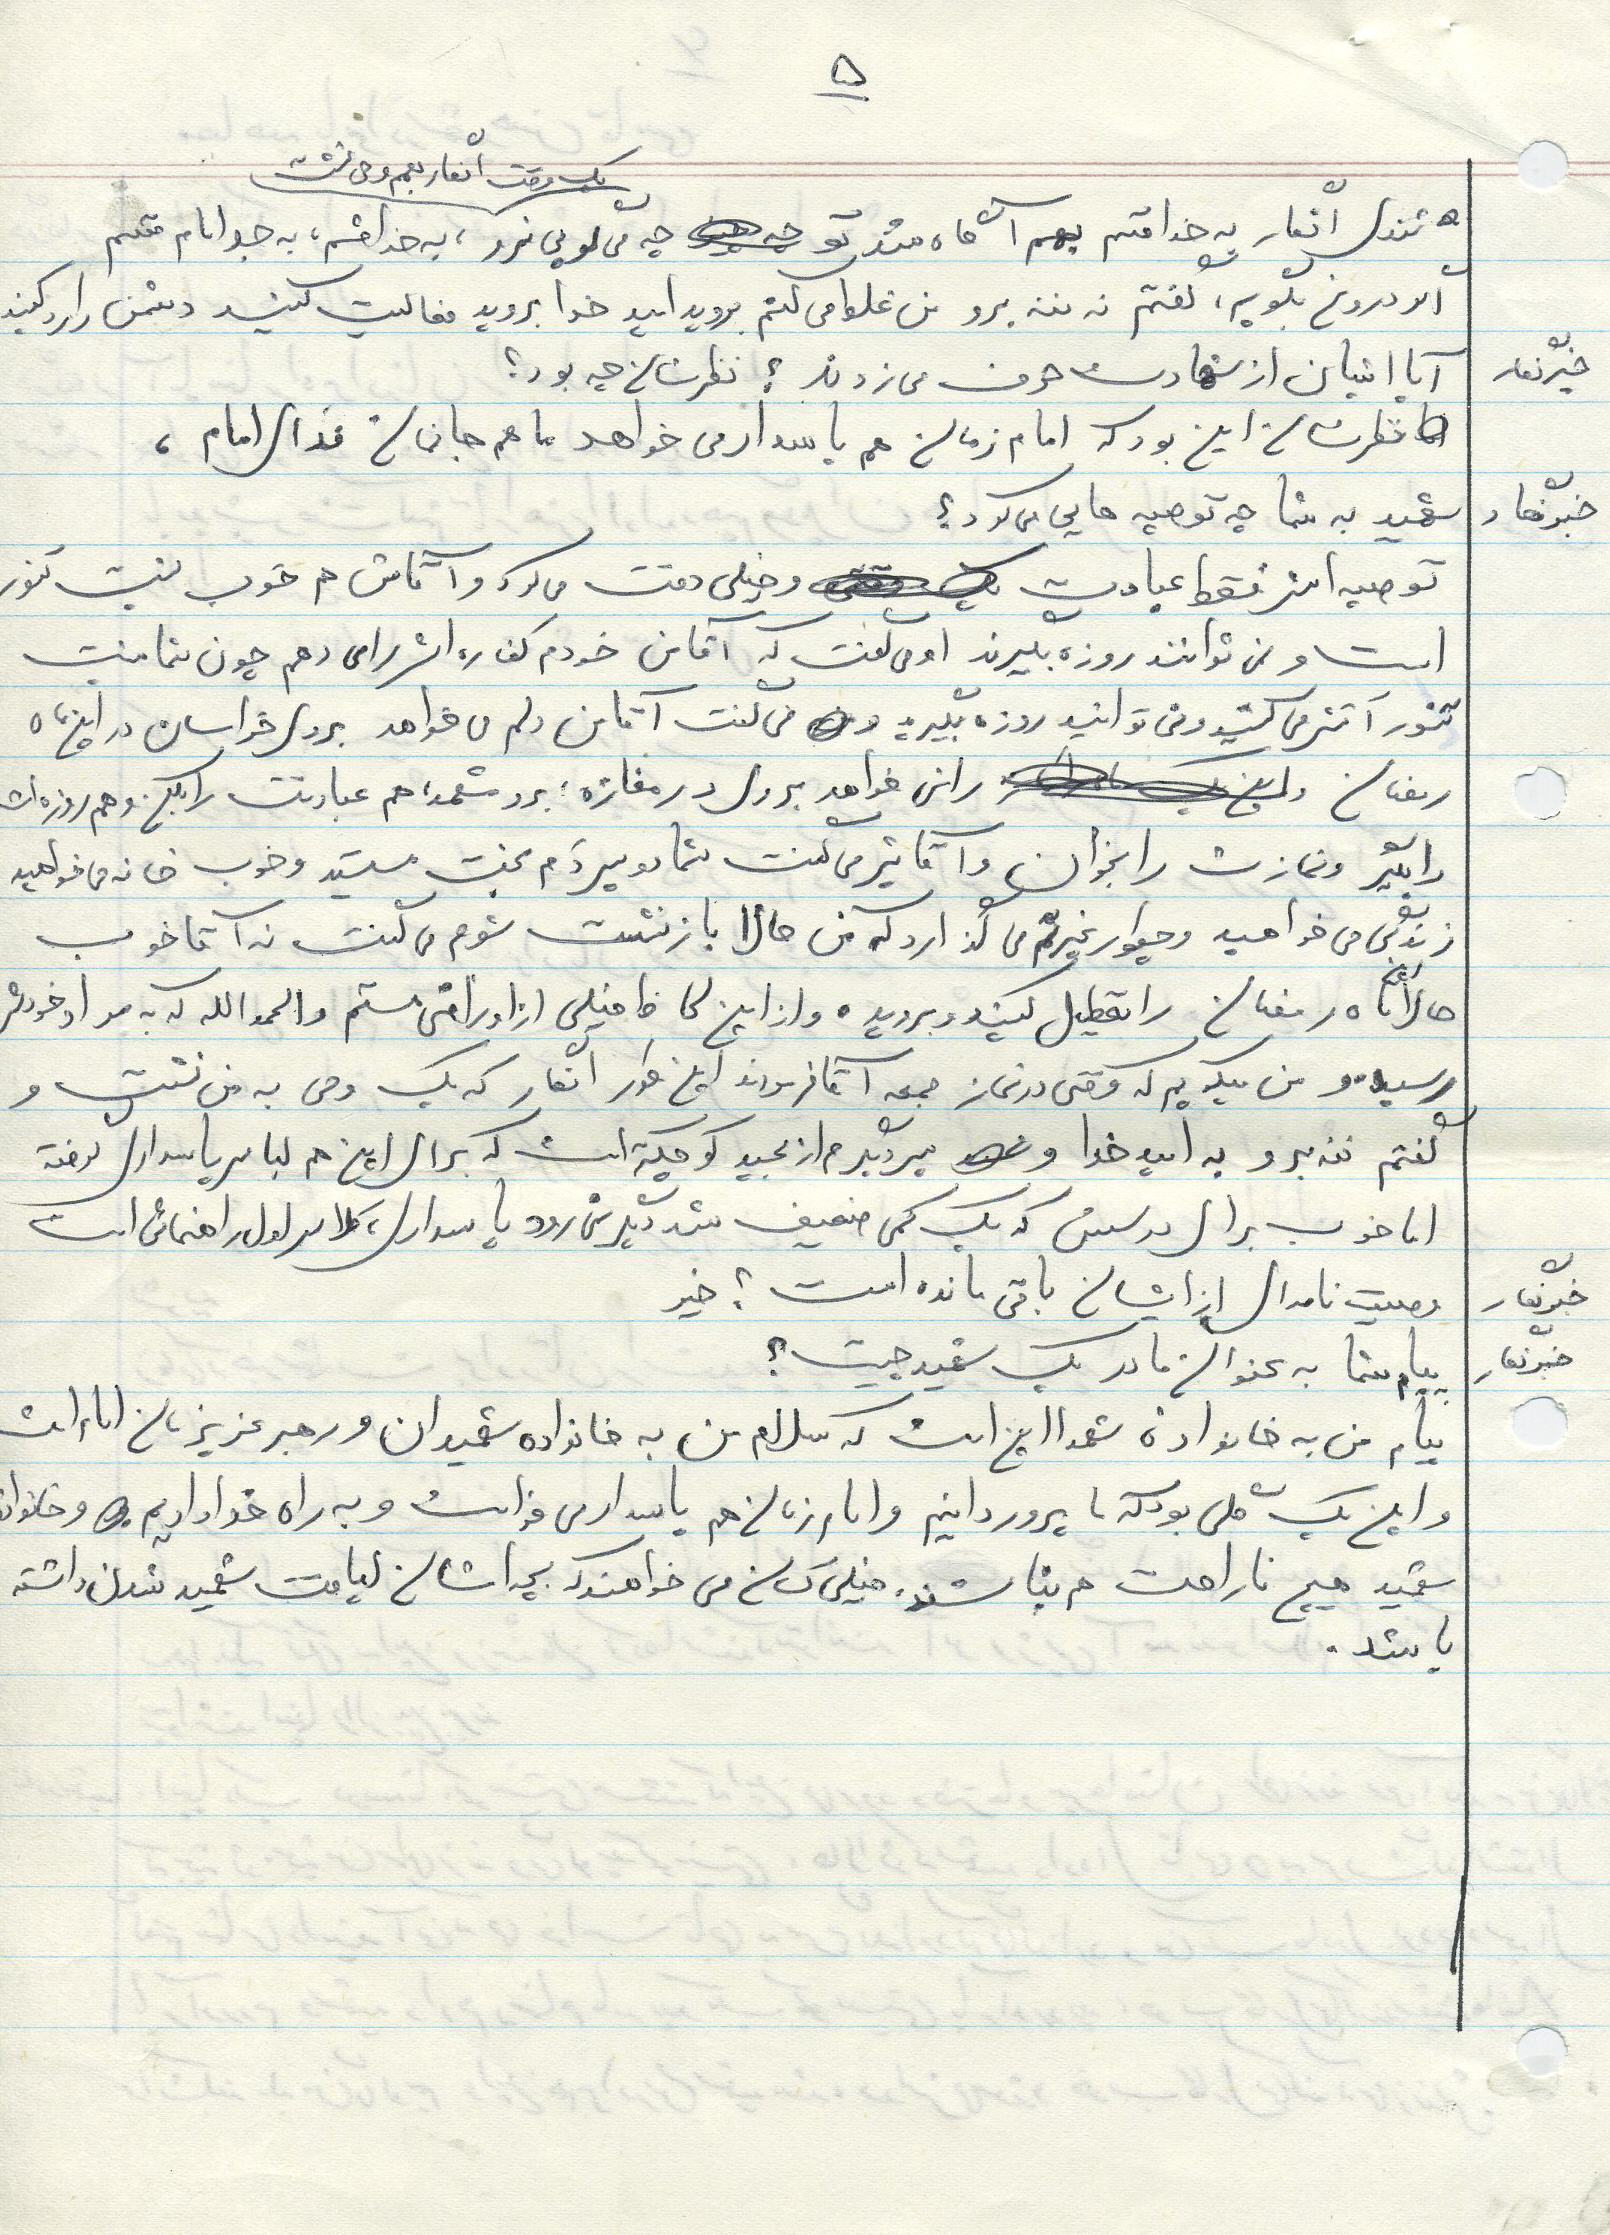 ۵
یک وقت انگار بهم وحی گشت
شدی انگار به خدا قسم بهم آگاه شد تو چه می گویی نرو، به خدا قسم، به جد امام قسم
اگر دروغ بگویم، گفتم نه ننه برو من غلط می کنم بروید امید خدا بروید فعالیت کنید دشمن را رد کنید
خبرنگار آیا ایشان از شهادت حرف می زدند؟ نظرشان چه بود؟
نظرشان این بود که امام زمان هم پاسدار می خواهد ما هم جانمان فدای امام،
خبرنگار شهید به شما چه توصیه هایی می کرد؟
توصیه اش فقط عبادت و خیلی دقت می کرد و آقاش هم خوب پشت تنور
است و نمی توانند روزه بگیرند او می گفت که آقا من خودم کفاره اش را می دهم چون شما پشت
تنور آتش می کشید و نمی توانید روزه بگیرید و می گفت آقا من دلم می خواهد بروی خراسان در این ماه
رمضان را نمی خواهد بروی در مغازه؛ برو مشهد، هم عبادتت را بکن و هم روزه ات
را بگیر و نمازت را بخوان و آقایش می گفت شما دو پسر دم بخت هستید و خوب خانه می خواهید
زندگی می خواهید و چطور غیرتم می گذارد که من حالا بازنشست شوم می گفت نه آقا خوب
حالا این ماه رمضان را تعطیل کنید و بروید و از این لحاظ خیلی از او راضی هستم و الحمدالله که به مراد خودش
رسید و من میگویم که وقتی در نماز جمعه آقا فرمودند این طور انگار که یک وحی به من گشت و
گفتم ننه برو به امید خدا و پسر دیگرم از مجید کوچیکتر است که برای این هم لباس پاسداری گرفته
اما خوب برای درسش که یک کمی ضعیف شد دیگر نمی رود پاسداری، کلاس اول راهنمائی است
خبرنگار وصیت نامه ای از ایشان باقی مانده است؟ خیر
خبرنگار پیام شما به عنوان مادر یک شهید چیست؟
پیام من به خانواده شهدا این است که سلام من به خانواده شهیدان و رهبر عزیزمان امام است
و این یک گلی بود که ما پروردانیم و امام زمان هم پاسدار می خواست و به راه خدا دادیم و خانواده
شهید هیچ ناراحت هم نباشند. خیلی کسان می خواهند که بچه اشان لیاقت شهید شدن داشته
باشد.